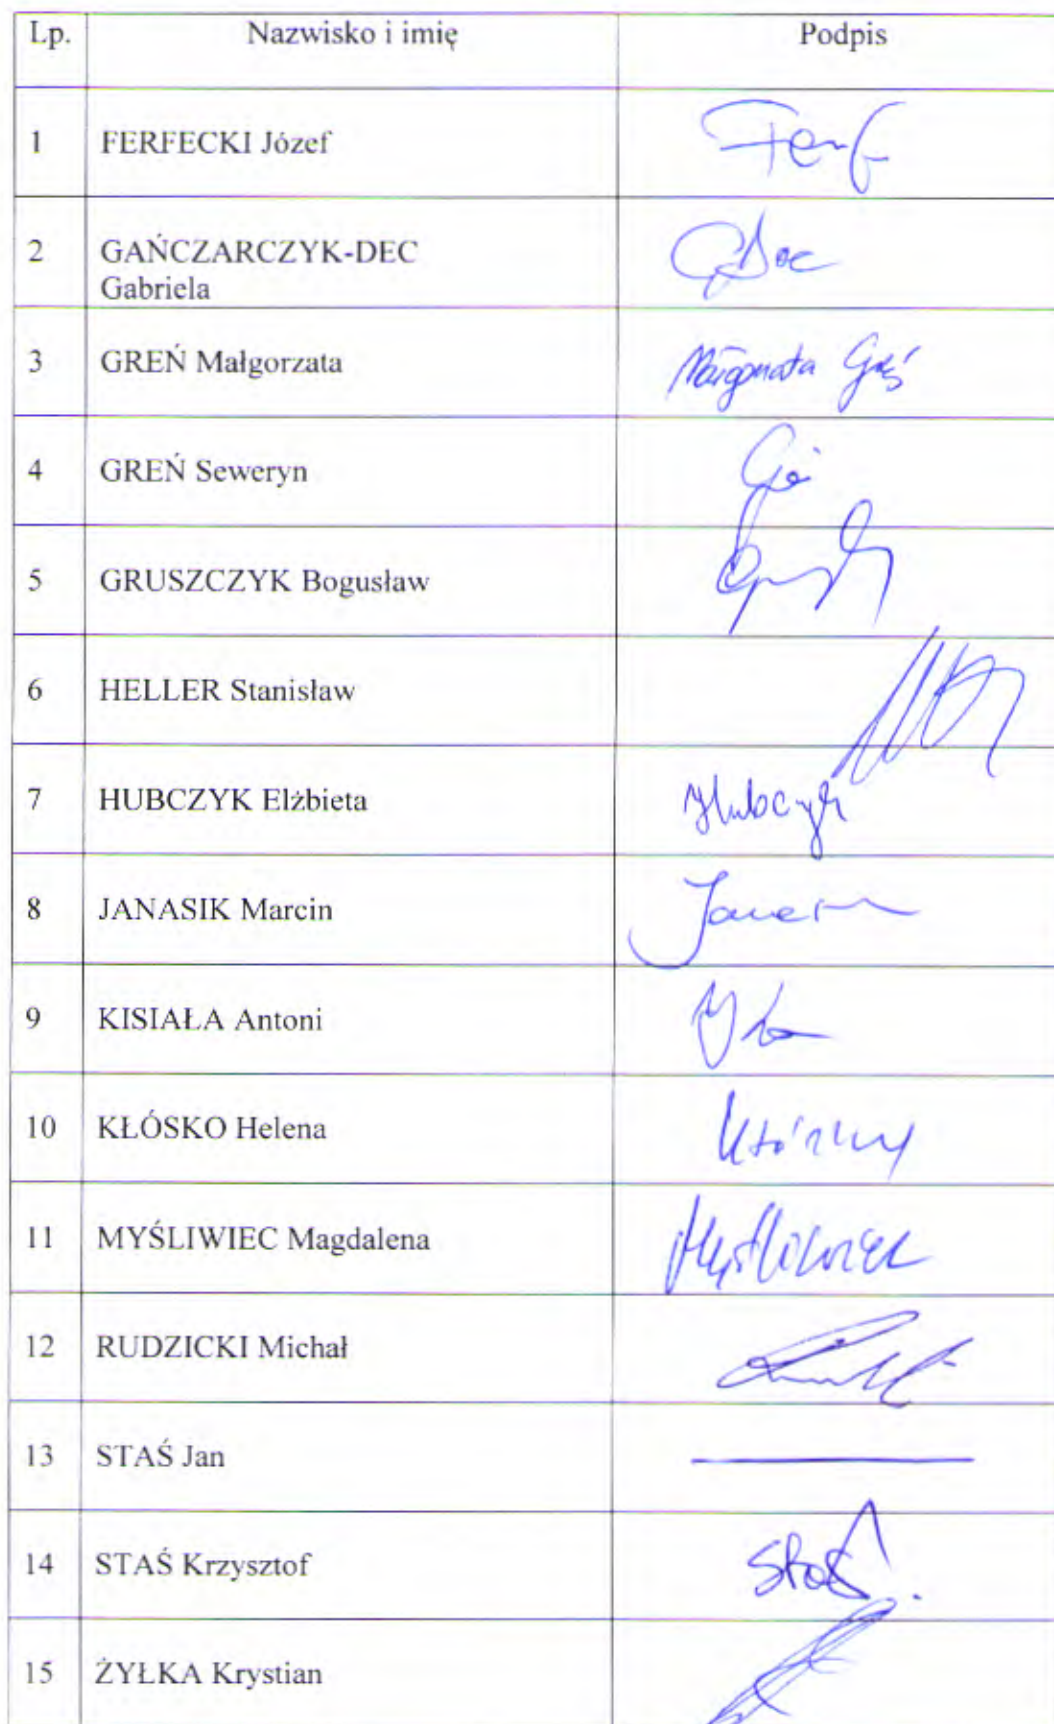 Lp. Nazwisko i imię Podpis
1 FERFECKI Józef Ferf
2 GAŃCZARCZYK-DEC
Gabriela
3 GREŃ Małgorzata Małgorzata Greń
4 GREŃ Seweryn
5 GRUSZCZYK Bogusław
6 HELLER Stanisław
7 HUBCZYK Elżbieta Hubczyk
8 JANASIK Marcin
9 KISIAŁA Antoni
10 KŁÓSKO Helena
11 MYŚLIWIEC Magdalena Myśliwiec
12 RUDZICKI Michał
13 STAŚ Jan
14 STAŚ Krzysztof Staś
15 ŻYŁKA Krystian